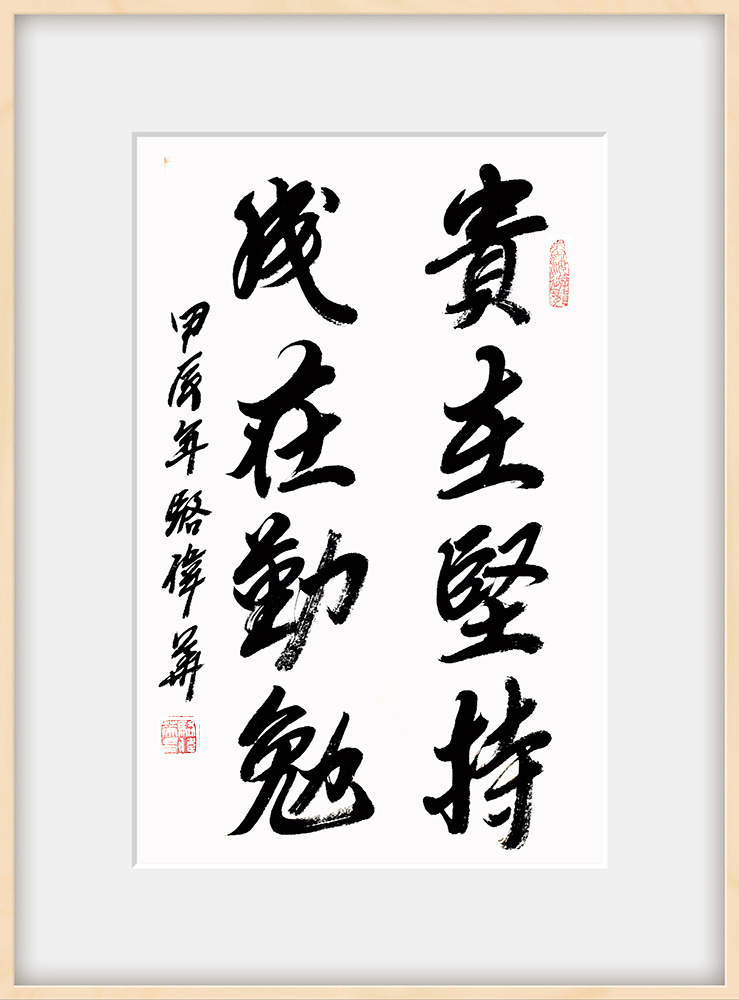 貴在堅持
成在勤勉
甲辰年駱偉華